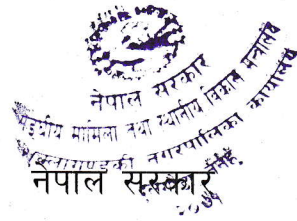 नेपाल सरकार
सङ्घीय मामिला तथा स्थानीय विकास मन्त्रालय
नगरपालिकाको कार्यालय
नेपाल सरकार